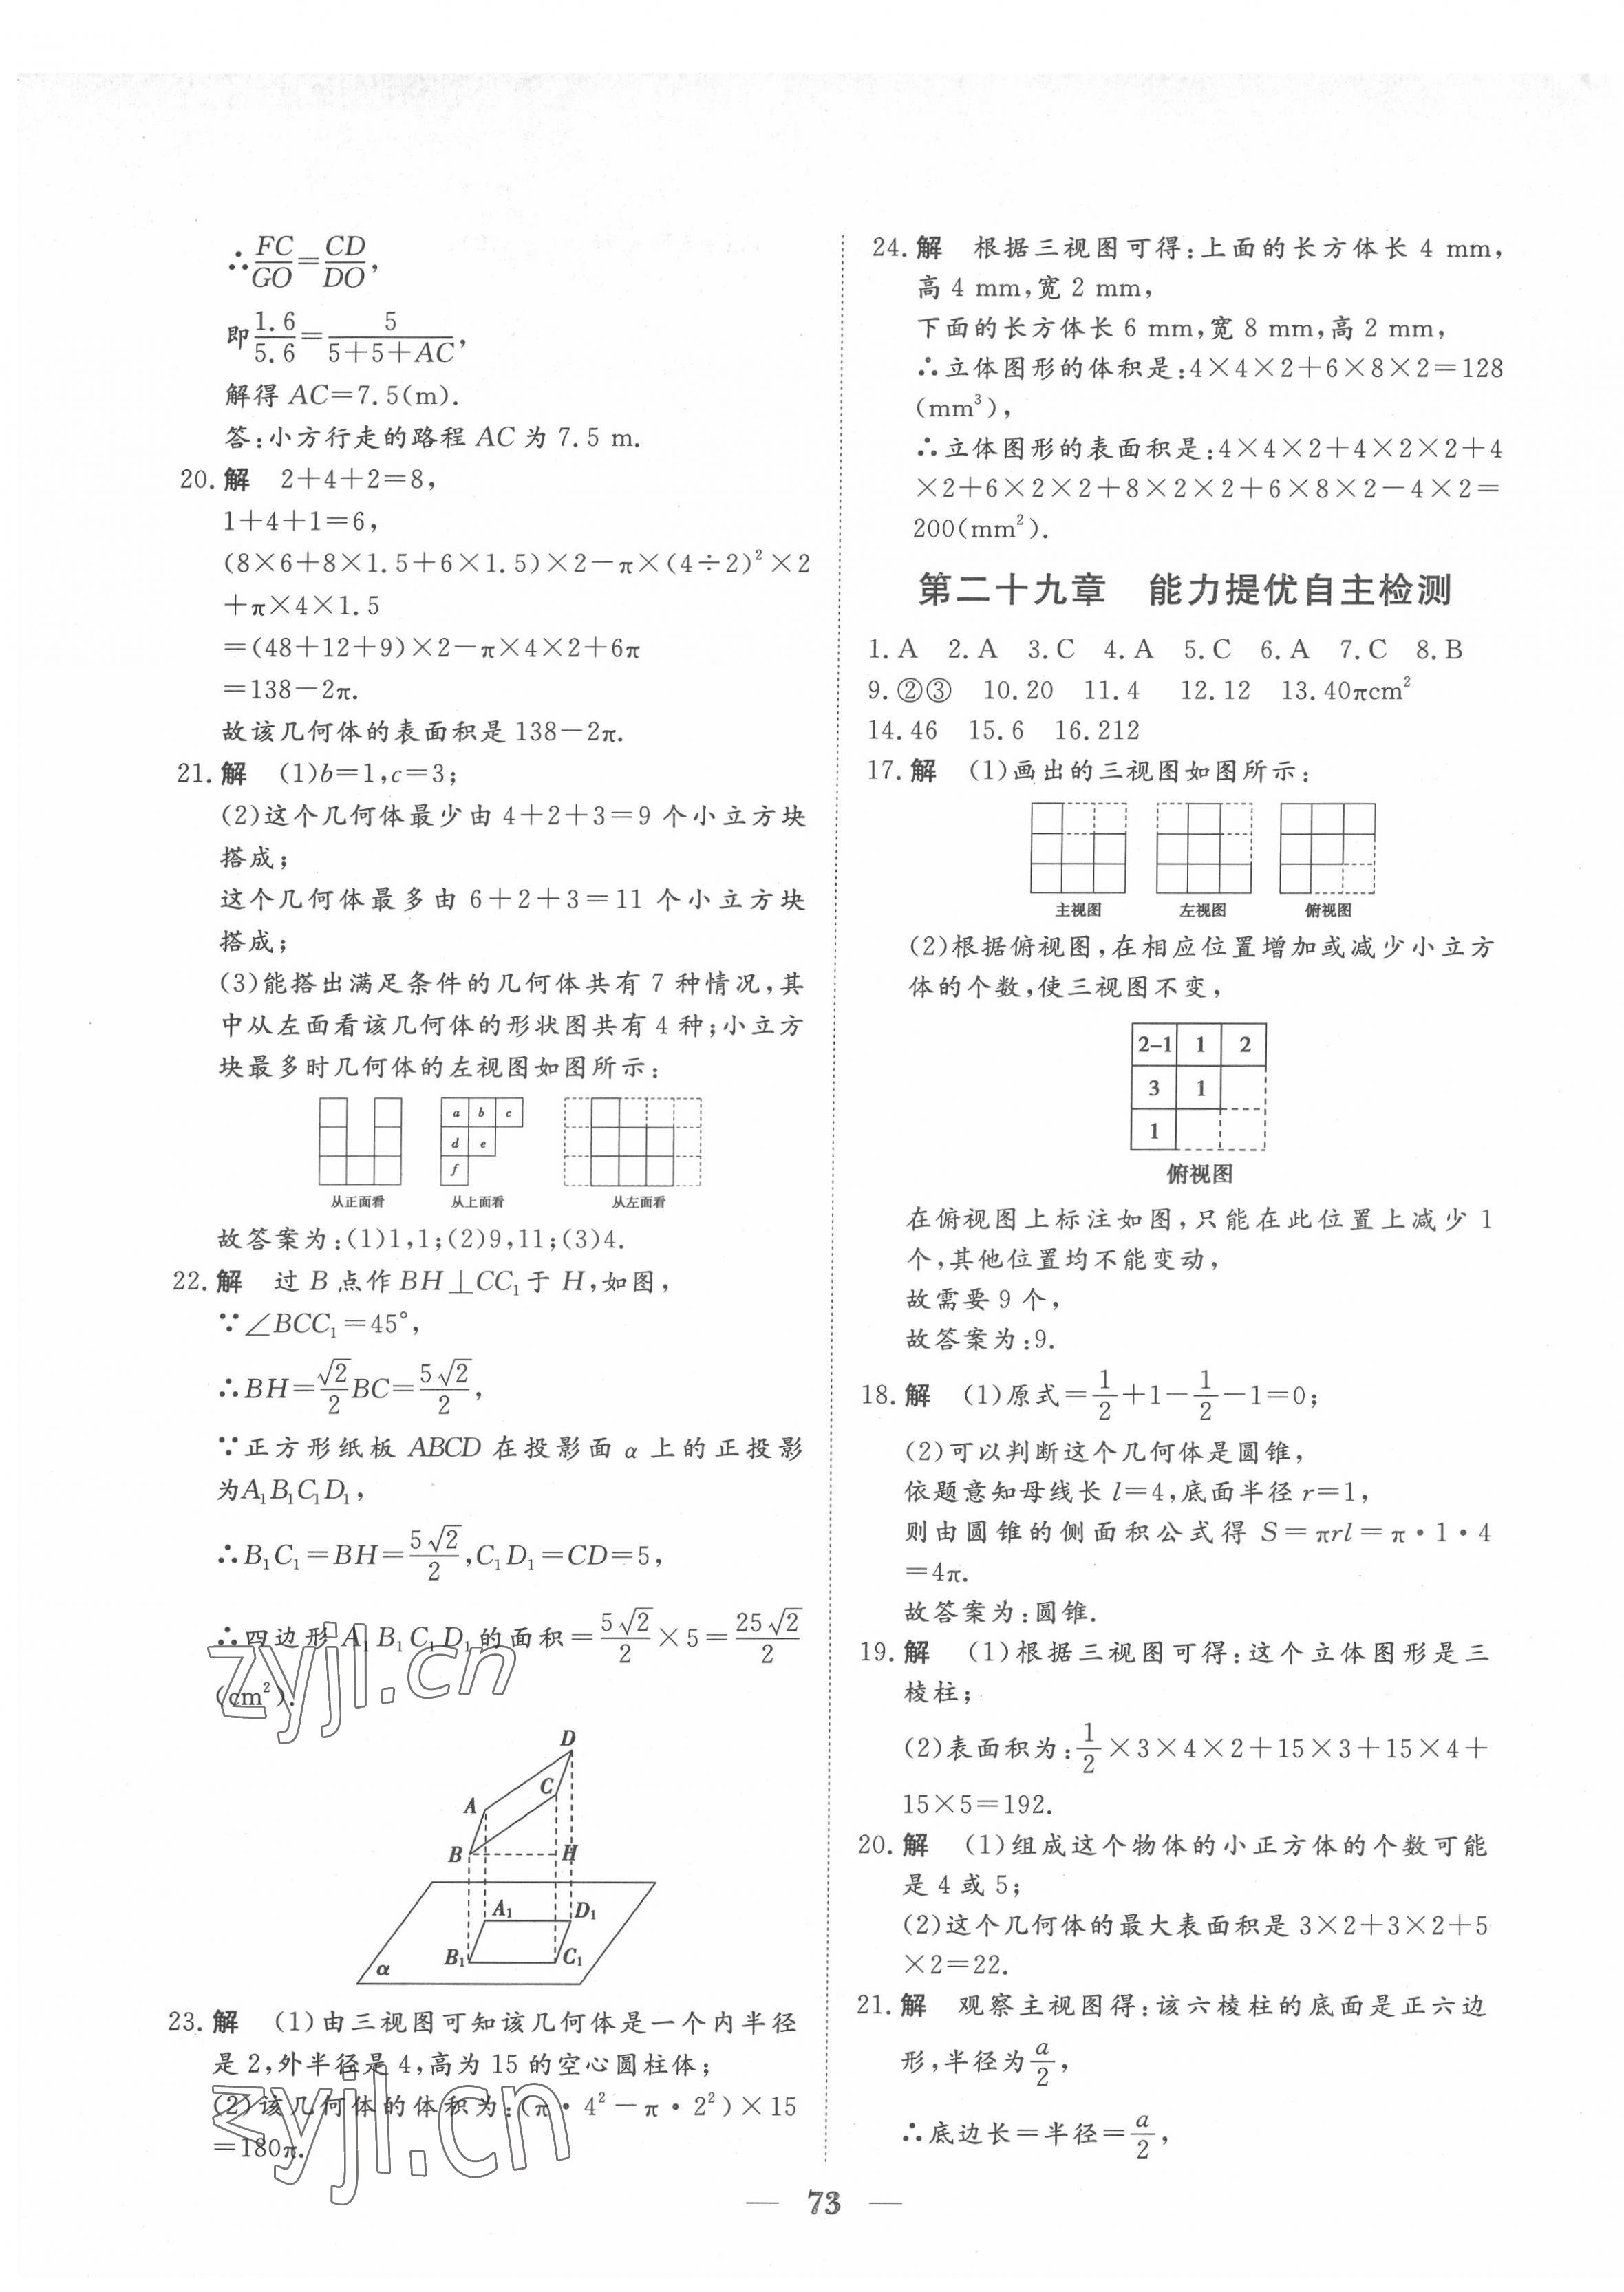 ∴FC/GO=CD/DO,
即1.6/5.6=5/(5+5+AC),
解得 AC=7.5(m).
答:小方行走的路程 AC 为 7.5 m.
20. 解 2+4+2=8,
1+4+1=6,
(8×6+8×1.5+6×1.5)×2-π×(4÷2)²×2
+π×4×1.5
=(48+12+9)×2-π×4×2+6π
=138-2π.
故该几何体的表面积是 138-2π.
21. 解 (1)b=1,c=3;
(2)这个几何体最少由 4+2+3=9 个小立方块
搭成;
这个几何体最多由 6+2+3=11 个小立方块
搭成;
(3)能搭出满足条件的几何体共有 7 种情况,其
中从左面看该几何体的形状图共有 4 种;小立方
块最多时几何体的左视图如图所示:
a b c
d e
f
从正面看 从上面看 从左面看
故答案为:(1)1,1;(2)9,11;(3)4.
22. 解 过 B 点作 BH⊥CC₁于 H,如图,
∵∠BCC₁=45°,
∴BH=√2/2BC=5√2/2,
∵正方形纸板 ABCD 在投影面 α 上的正投影
为A₁B₁C₁D₁,
∴B₁C₁=BH=5√2/2,C₁D₁=CD=5,
∴四边形 A₁B₁C₁D₁的面积=5√2/2×5=25√2/2
(cm²).
zyjl.cn
D
C
A
B H
A₁ D₁
B₁ C₁
α
23. 解 (1)由三视图可知该几何体是一个内半径
是 2,外半径是 4,高为 15 的空心圆柱体;
(2)该几何体的体积为:(π·4²-π·2²)×15
=180π.
zyjl.cn
24. 解 根据三视图可得:上面的长方体长 4 mm,
高 4 mm,宽 2 mm,
下面的长方体长 6 mm,宽 8 mm,高 2 mm,
∴立体图形的体积是:4×4×2+6×8×2=128
(mm³),
∴立体图形的表面积是:4×4×2+4×2×2+4
×2+6×2×2+8×2×2+6×8×2-4×2=
200(mm²).
第二十九章 能力提优自主检测
1.A 2.A 3.C 4.A 5.C 6.A 7.C 8.B
9.②③ 10.20 11.4 12.12 13.40πcm²
14.46 15.6 16.212
17. 解 (1)画出的三视图如图所示:
主视图 左视图 俯视图
(2)根据俯视图,在相应位置增加或减少小立方
体的个数,使三视图不变,
2-1 1 2
3 1
1
俯视图
在俯视图上标注如图,只能在此位置上减少 1
个,其他位置均不能变动,
故需要 9 个,
故答案为:9.
18. 解 (1)原式=1/2+1-1/2-1=0;
(2)可以判断这个几何体是圆锥,
依题意知母线长 l=4,底面半径 r=1,
则由圆锥的侧面积公式得 S=πrl=π·1·4
=4π.
故答案为:圆锥.
19. 解 (1)根据三视图可得:这个立体图形是三
棱柱;
(2)表面积为:1/2×3×4×2+15×3+15×4+
15×5=192.
20. 解 (1)组成这个物体的小正方体的个数可能
是 4 或 5;
(2)这个几何体的最大表面积是 3×2+3×2+5
×2=22.
21. 解 观察主视图得:该六棱柱的底面是正六边
形,半径为a/2,
∴底边长=半径=a/2,
— 73 —